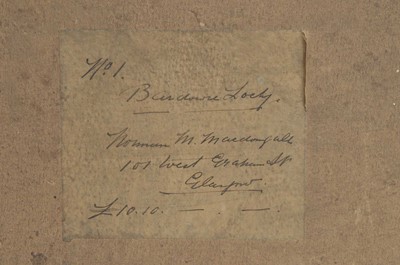 No 1.
Bardowie Loch.
Norman M. Macdougall
101 West Graham St
Glasgow.
£10.10. — —